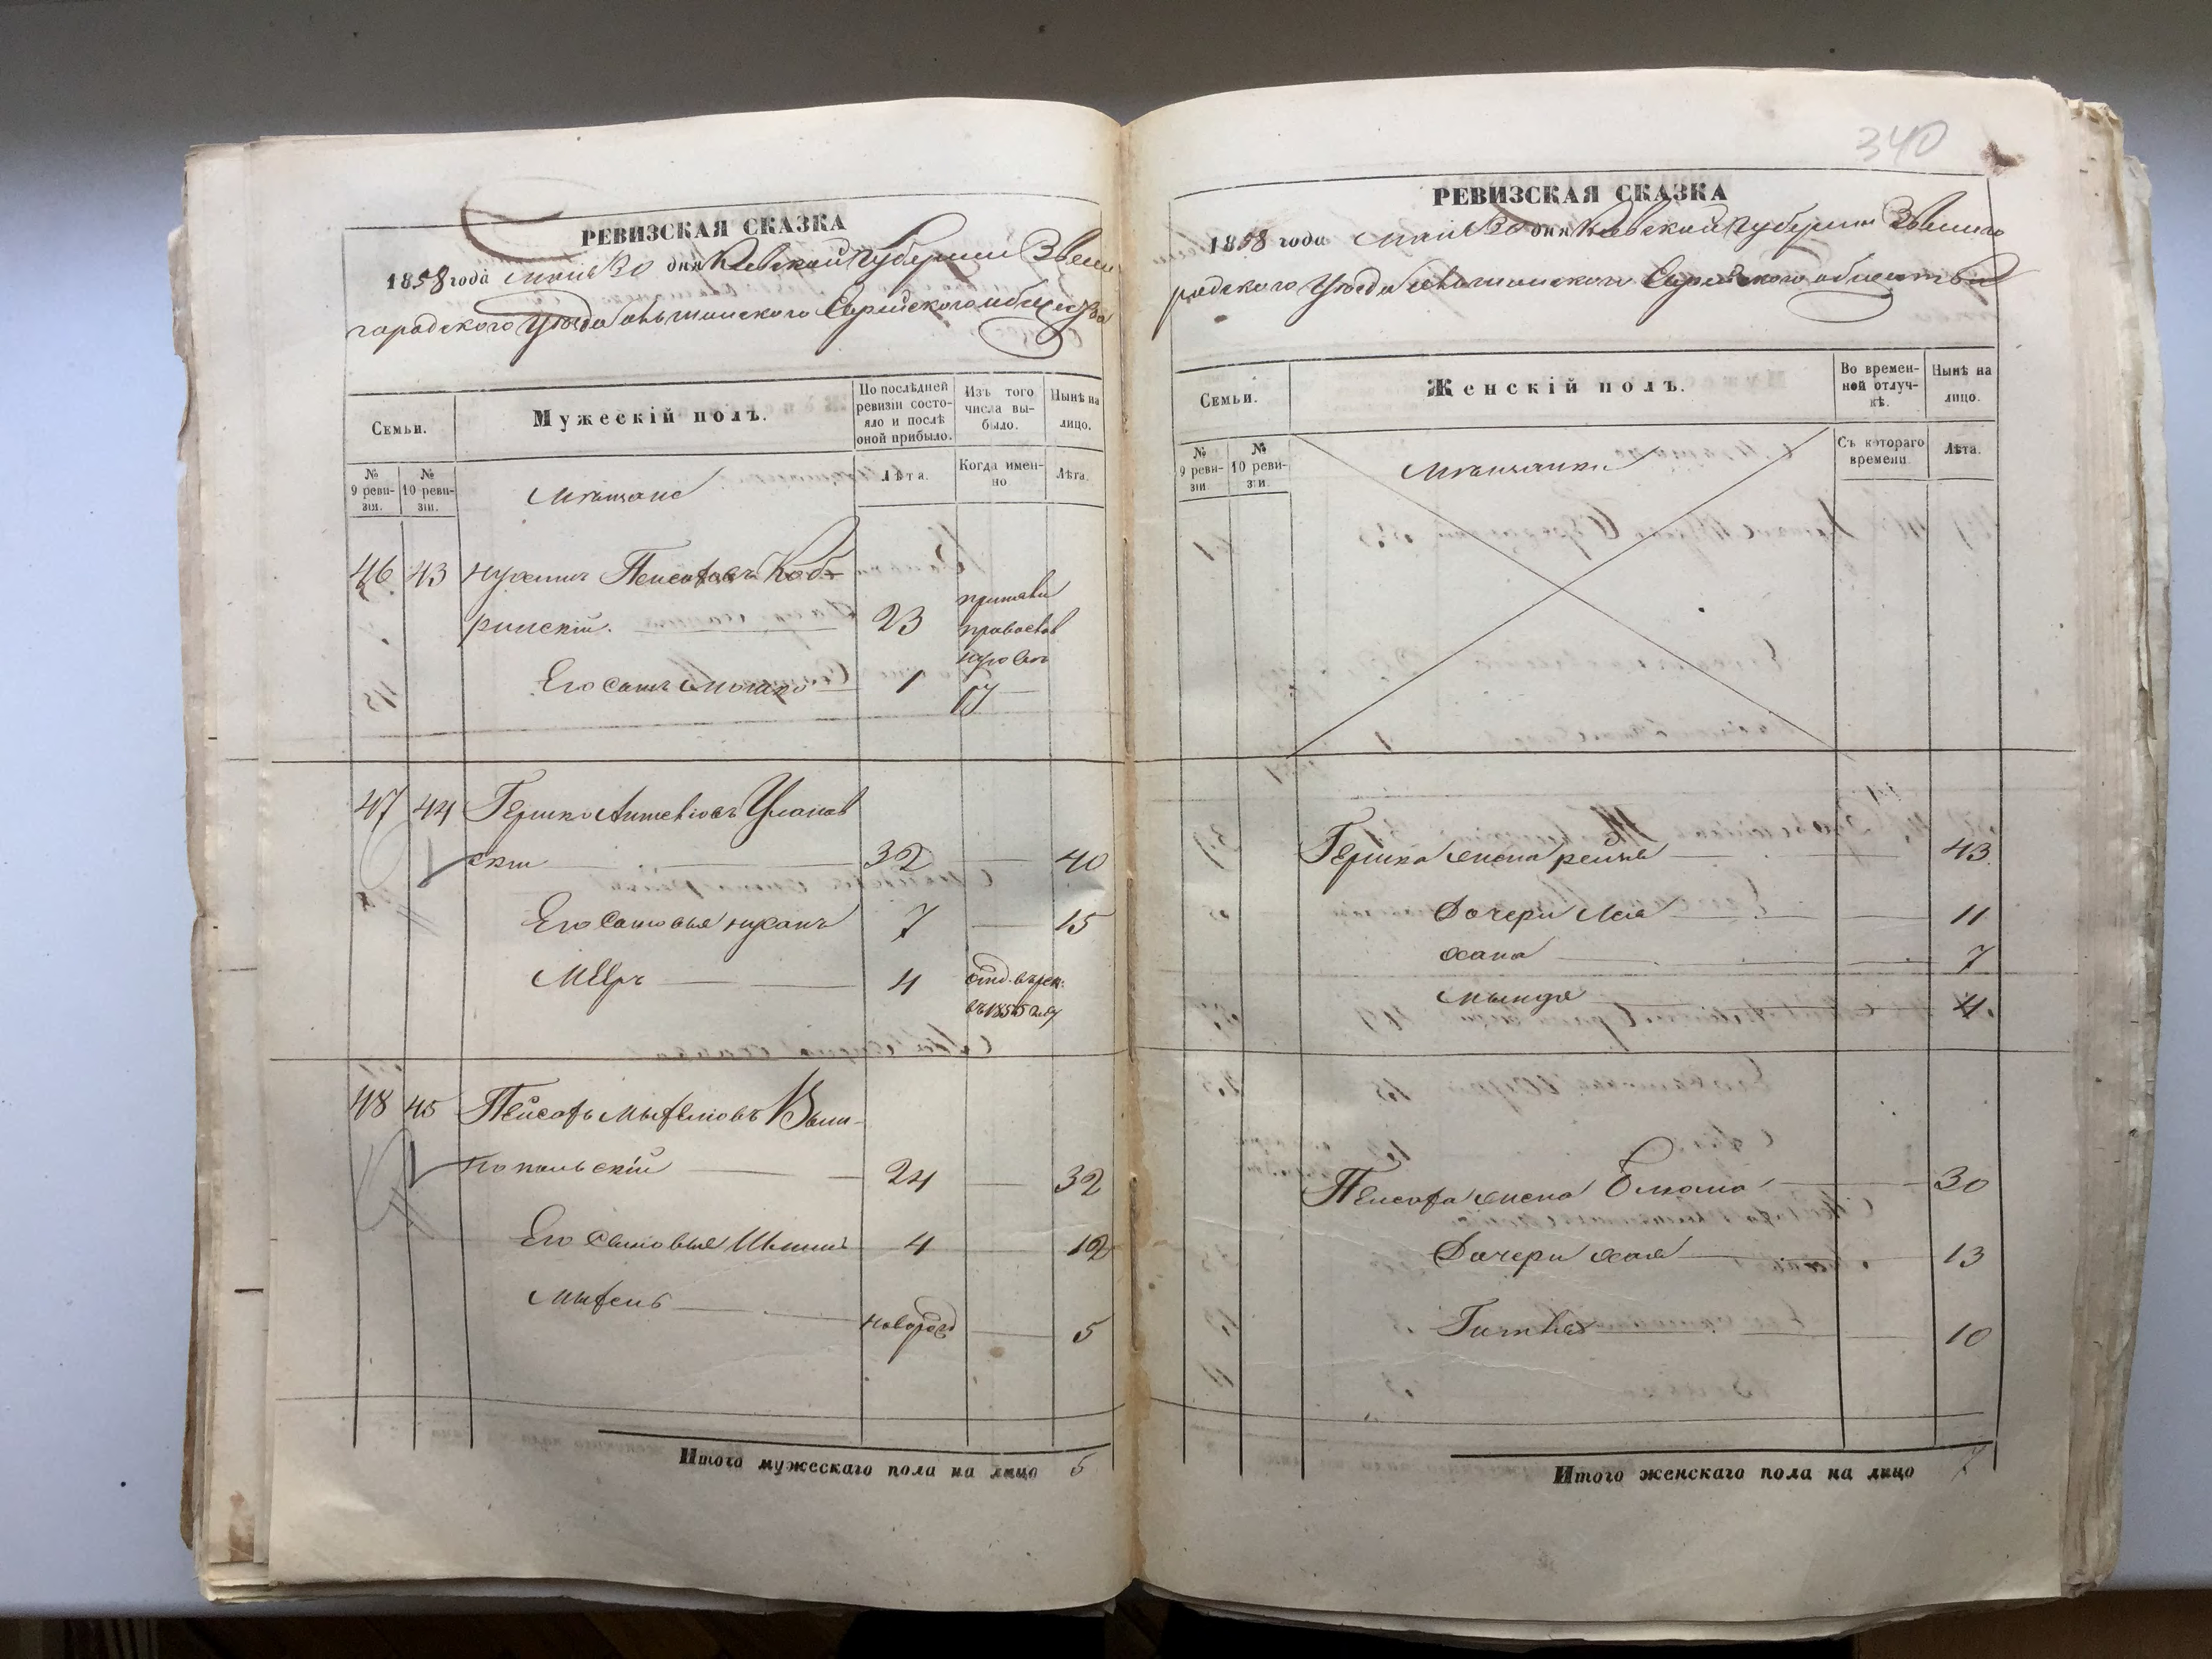 340
РЕВИЗСКАЯ СКАЗКА
1858 года мая 30 дня Киевской Губернии Звени
городского Уѣзда Еврейского общества
Семьи.
Мужескій полъ.
По послѣдней ревизіи состояло и послѣ оной прибыло.
Изъ того числа выбыло.
Нынѣ на лицо.
№ 9 ревизіи.
№ 10 ревизіи.
Лѣта.
Когда именно
Лѣта.
Мѣщане
46 43 Нухимъ Пейсаховъ Коб-
ринскій. 23
Его сынъ Мошко 1
47 44 Гершко Улановскій 32 40
Его сыновья Нухимъ 7 15
Меръ 4 отд. въ рек.
въ 1855 году
48 45 Пейсахъ
польскій 24 32
Его сыновья 4 12
новорожд 5
Итого мужескаго пола на лицо 5
РЕВИЗСКАЯ СКАЗКА
1858 года мая 30 дня Киевской Губернии Звениго
родского Уѣзда Еврейского общества
Семьи.
Женскій полъ.
Во временной отлучкѣ.
Нынѣ на лицо.
№ 9 ревизіи
№ 10 ревизіи.
Съ котораго времени.
Лѣта.
Мѣщанки
Гершка жена Рейзя 43
Дочери Лея 11
Хана 7
Мындя 4
Пейсаха жена 30
Дочери Хая 13
10
Итого женскаго пола на лицо 7